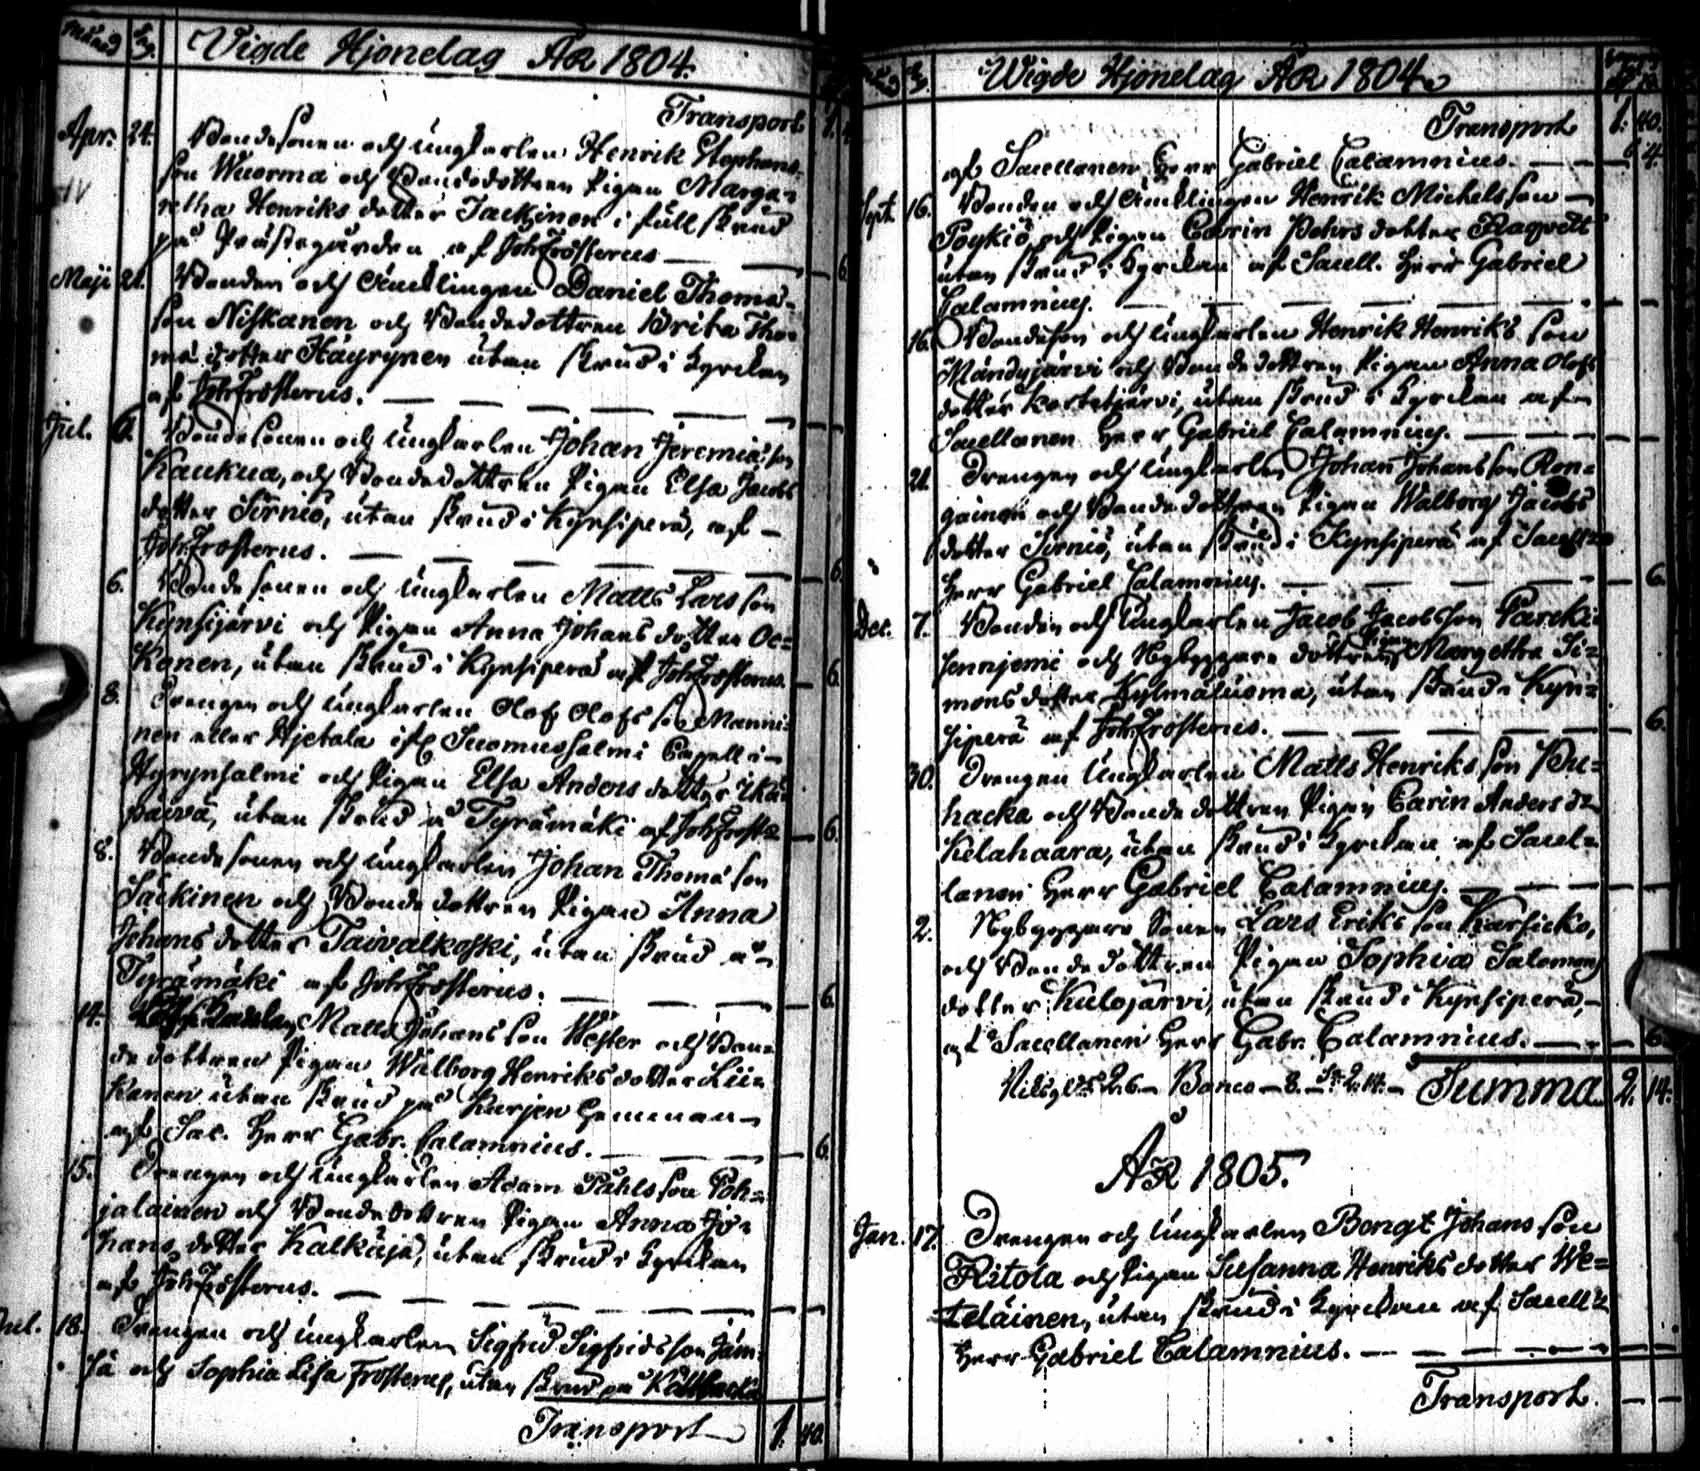 Månad Dag. Vigde Hjonelag År 1804.
Transport 1.
Apr. 24. Bondesonen och ungkarlen Henrik Stephans-
son Wuorma och Bondedottren Pigan Marga-
retha Henriks dotter Jackinen i full skrud
på Prästegården af Joh. Frosterus — 6
Maji 21. Bonden och Enklingen Daniel Thomæ-
son Niskanen och Bondedottren Brita Tho-
mæ dotter Häyrynen utan skrud i Kyrckan
af Joh. Frosterus. —
Jul. 6. Bondesonen och ungkarlen Johan Jeremiæ son
Kaukua, och Bondedottren Pigan Elsa Jacobs
dotter Sirniö, utan skrud i Kynsiperä, af
Joh. Frosterus. — 6.
6. Bondesonen och ungkarlen Matts Larsson
Kynsijärvi och Pigan Anna Johans dotter Oc-
konen, utan skrud i Kynsiperä af Joh. Frosterus. — 6.
8. Drengen och ungkarlen Olof Olofs son Manni-
nen eller Hjetala ifr. Suomussalmi Capell i
Hyrynsalmi och Pigan Elsa Anders dotter Ikä-
päivä, utan skrud å Tyrämäki af Joh. Frost. — 6.
8. Bondesonen och ungkarlen Johan Thomæ son
Säckinen och Bondedottren Pigan Anna
Johans dotter Taivalkoski, utan skrud å
Tyrämäki af Joh. Frosterus. — 6.
14. Matts Johans son Wester och Bon-
dedottren Pigan Walborg Henriks dotter Lii-
kanen utan skrud på Kurjen hemman
af Sac. Herr Gabr. Calamnius. — 6.
15. Drengen och ungkarlen Adam Påhls son Poh-
jalainen och Bondedottren Pigan Anna Jo-
hans dotter Kalkaja, utan skrud i Kyrckan
af Joh. Frosterus. —
Jul. 18. Drengen och ungkarlen Sigfrid Sigfridsson Jäm-
sä och Sophia Lisa Frosterus, utan skrud på
Transport 1. 40.
Wigde Hjonelag År 1804
Transport 1. 40.
af Sacellanen Herr Gabriel Calamnius. — 4.
Sept. 16. Bonden och Enklingen Henrik Michelsson
Poykiö och Pigan Carin Pehrs dotter Ragvelt
utan skrud i Kyrckan af Sacell. Herr Gabriel
Calamnius. —
16. Bondeson och ungkarlen Henrik Henriks son
Mändyjärvi och Bondedottren Pigan Anna Olofs
dotter Kostetjervi, utan skrud i Kyrckan af
Sacellanen Herr Gabriel Calamnius. —
21. Drengen och ungkarlen Johan Johansson Ron-
gainen och Bondedottren Pigan Walborg Jacobs
dotter Sirniö, utan skrud i Kynsiperä af Sacell.
Herr Gabriel Calamnius. — 6.
Dec. 7. Bonden och ungkarlen Jacob Jacobsson Parcki-
sennjemi och Nybyggare dottren Pigan Margetha Si-
mons dotter Kylmäluoma, utan skrud i Kyn-
siperä af Joh. Frosterus. — 6.
30. Drengen Ungkarlen Matts Henriks son Pu-
hacka och Bondedottren Pigan Carin Anders dr
Kelahaara, utan skrud i Kyrckan af Sacel-
lanen Herr Gabriel Calamnius. —
2. Nybyggare Sonen Lars Eriks son Karsicko,
och Bondedottren Pigan Sophia Salomons
dotter Kulojärvi, utan skrud i Kynsiperä,
af Sacellanen Herr Gabr. Calamnius. — 6
Banco — 8. — Summa 2. 14.
År 1805.
Jan. 17. Drengen och ungkarlen Bengt Johans son
Ritola och Pigan Susanna Henriks dotter We-
teläinen, utan skrud i Kyrckan af Sacell.
Herr Gabriel Calamnius. —
Transport. —